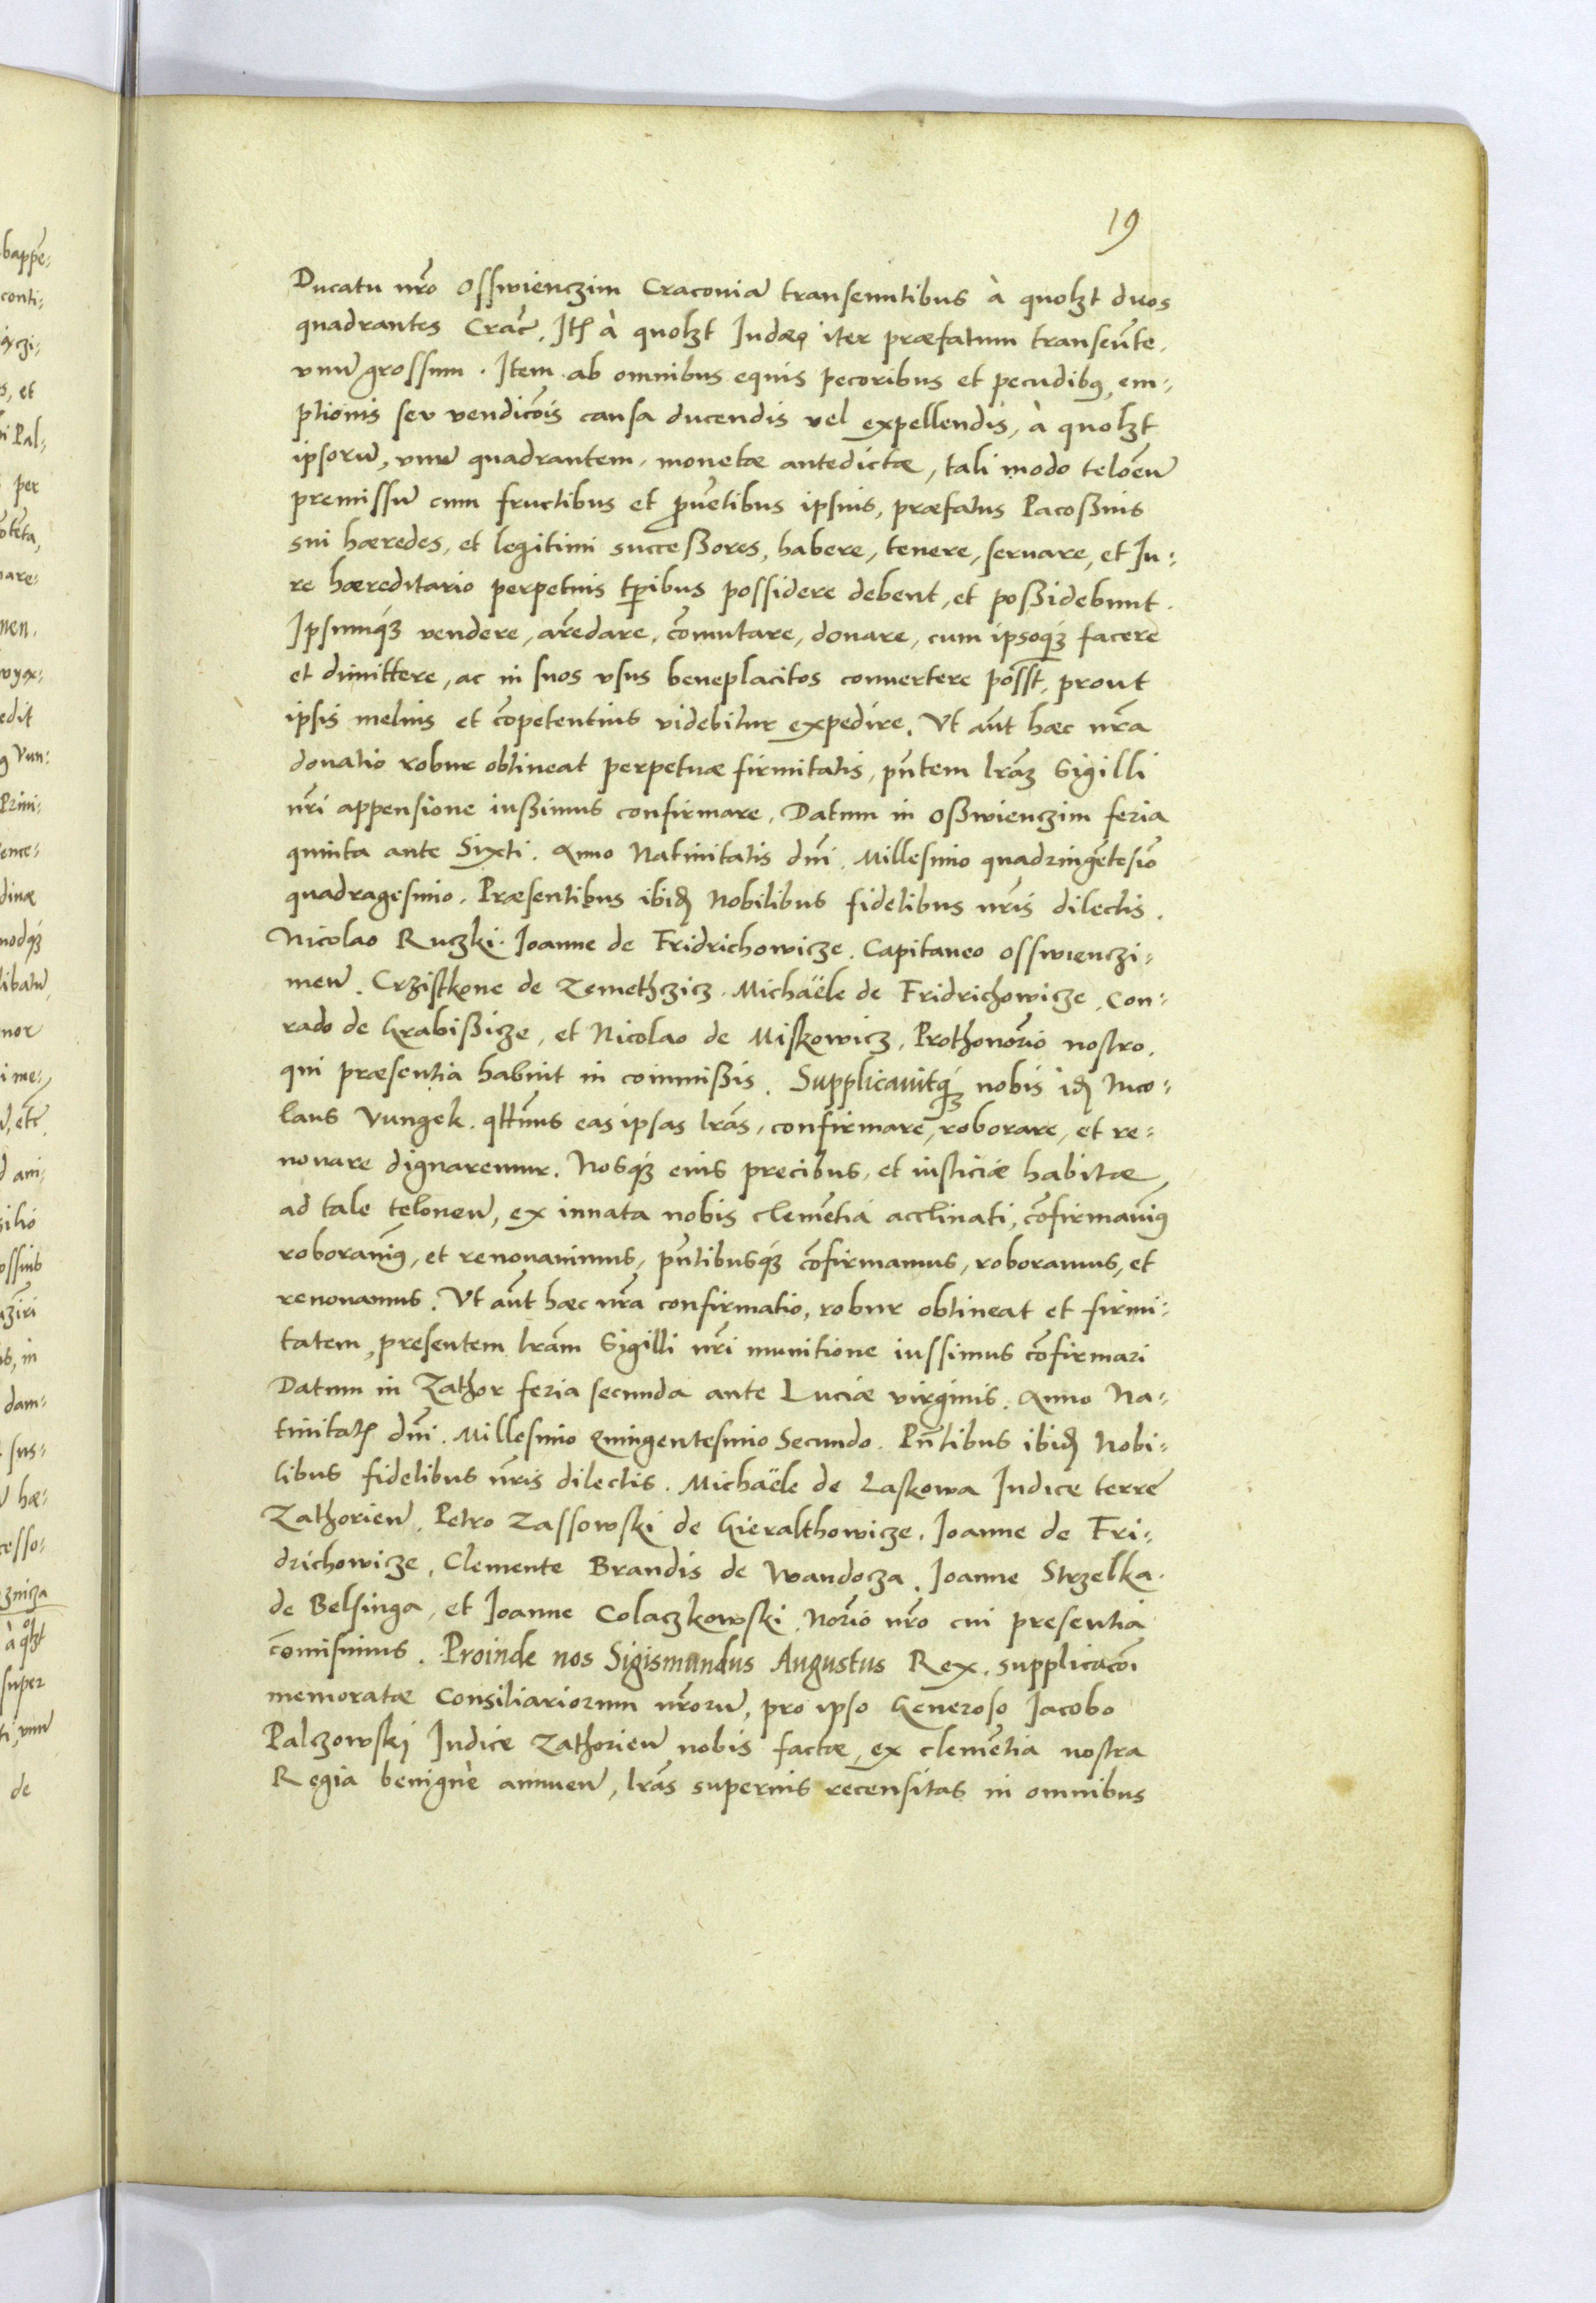 19
Ducatu nr̃o Osswienczim Cracoviã transeuntibus à quolȝt duos
quadrantes Crac̃. Itē à quolȝt Iudæo iter præfatum transeũte,
vnũ grossum. Item ab omnibus equis pecoribus et pecudibꝰ, em-
ptionis seu vendic̃ois causa ducendis vel expellendis, à quolȝt
ipsorũ, vnũ quadrantem, monetæ antedictæ, tali modo teloẽũ
premissũ cum fructibus et ꝓuẽtibus ipsius, præfatus Pacoßius
sui hæredes, et legitimi succeßores, habere, tenere, seruare, et Iu-
re hæreditario perpetuis tp̃ibus possidere debent, et poßidebunt.
Ipsumqȝ vendere, arẽdare, cõmutare, donare, cum ipsoqȝ facere
et dimittere, ac in suos vsus beneplacitos conuertere posst̃, prout
ipsis melius et cõpetentius videbitur expedire. Vt aũt hæc nr̃a
donatio robur obtineat perpetuæ firmitatis, pñtem lr̃aȝ Sigilli
nr̃i appensione iußimus confirmare. Datum in Oßwienczim feria
quinta ante Sixti. Anno Natiuitatis dñi. Millesimo quadringẽtesiõ
quadragesimo. Præsentibus ibidē Nobilibus fidelibus nr̃is dilectis.
Nicolao Ruczki. Ioanne de Fridrichowicze. Capitaneo Osswienczi-
meñ. Crzistkone de Zemethczicz. Michaële de Fridrichowicze. Con-
rado de Grabißicze, et Nicolao de Miskowicz, Prothonor̃io nostro,
qui præsentia habuit in commißis. Supplicauitqȝ nobis idē Nico-
laus Vungek. qt̃tnus eas ipsas lr̃as, confirmare, roborare, et re-
nouare dignaremur. Nosqȝ eius precibus, et iusticiæ habitæ
ad tale teloneũ, ex innata nobis clemẽtia acclinati, cõfirmauim̃ꝰ
roborauim̃ꝰ, et renouauimus, pñtibusqȝ cõfirmamus, roboramus, et
renouamus. Vt aũt hæc nr̃a confirmatio, robur obtineat et firmi-
tatem, presentem lr̃am Sigilli nr̃i munitione iussimus cõfirmari
Datum in Zathor feria secunda ante Luciæ virginis. Anno Na-
tiuitatē dñi. Millesimo Quingentesimo Secundo. Pñtibus ibidē Nobi-
libus fidelibus nr̃is dilectis. Michaële de Laskowa Iudice terre
Zathorieñ. Petro Zassowski de Gieralthowicze. Ioanne de Fri-
drichowicze, Clemente Brandis de Wandocza. Ioanne Strzelka.
de Belsinga, et Ioanne Colaczkowski. Nor̃io nr̃o cui presentia
cõmisimus. Proinde nos Sigismundus Augustus Rex, supplicac̃oi
memoratæ Consiliariorum nr̃orũ, pro ipso Generoso Iacobo
Palczowski Iudice Zathorieñ nobis factæ, ex clemẽtia nostra
Regia benignè annueñ, lr̃as superius recensitas in omnibus